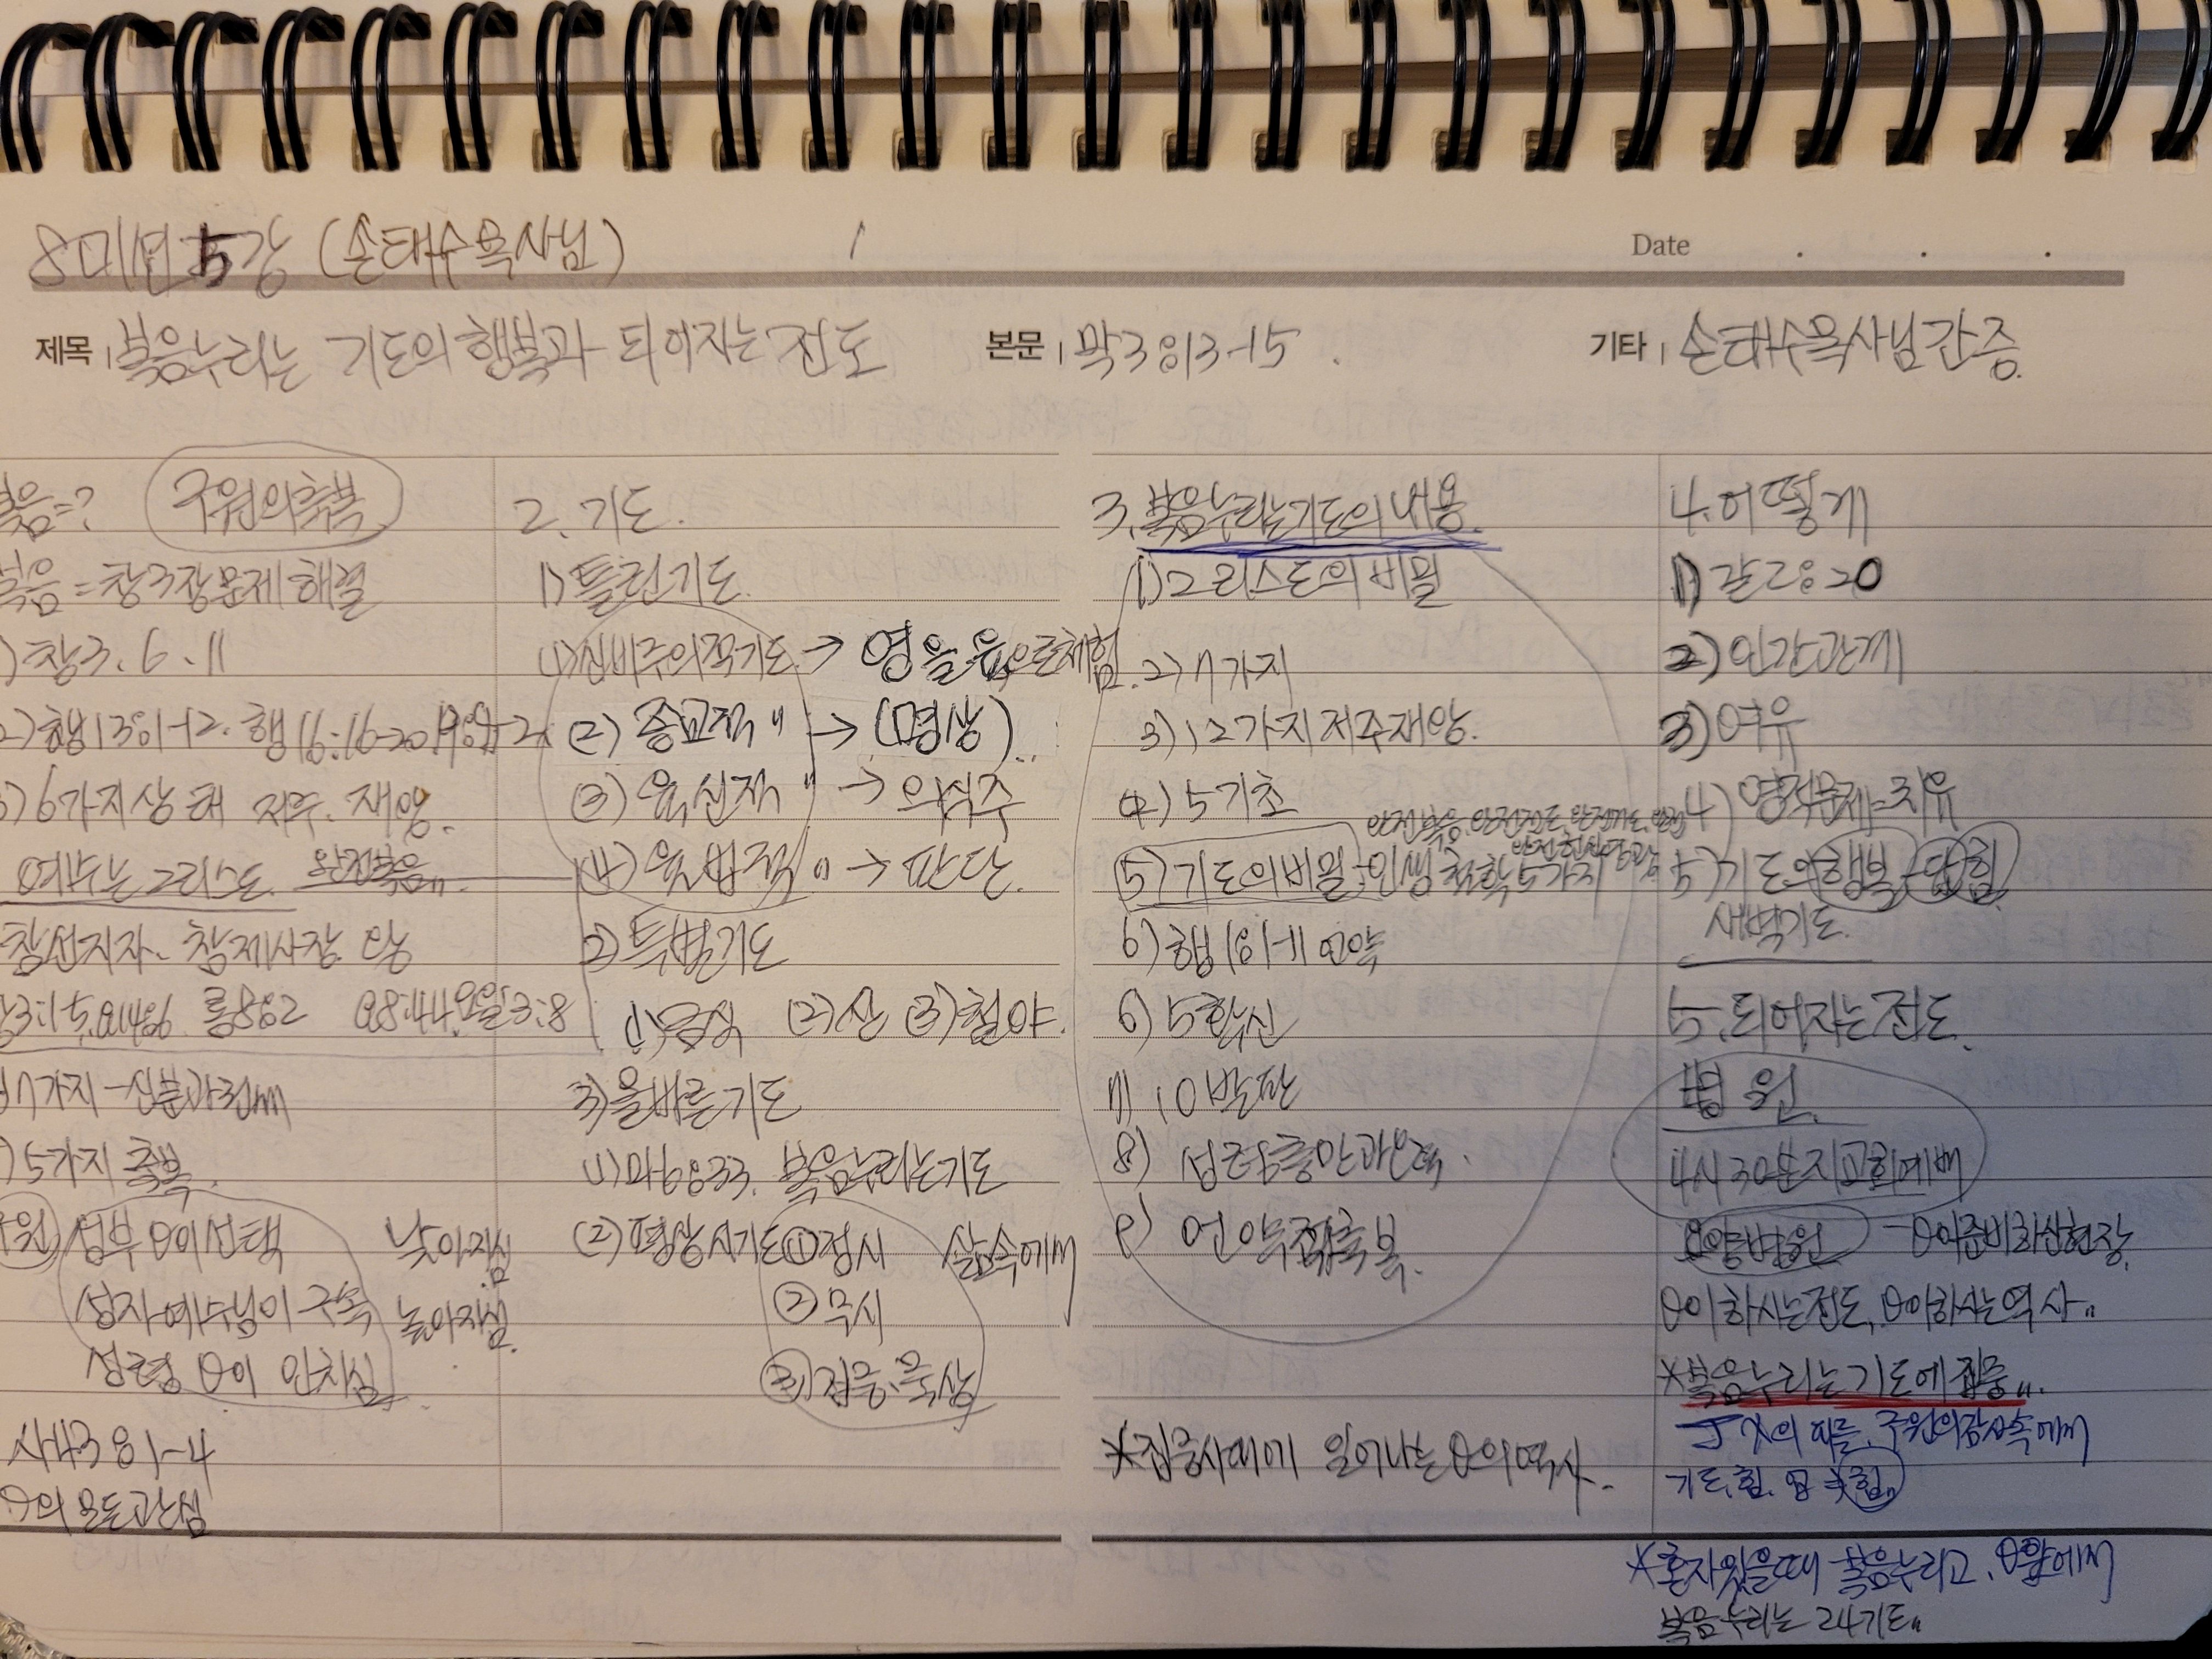 5강 (손태수목사님)
Date . . .
제목 | 복음누리는 기도의 행복과 되어지는 전도
본문 | 막3:13-15
기타 | 손태수목사님간증
복음=? 구원의축복
복음=창3장문제해결
1)창3.6.11
2)행13:1-12. 행16:16-20
3)6가지상태 저주.재앙.
예수는 그리스도. 완전복음"
참선지자. 참제사장 왕
롬8:2 요일3:8
7가지-신분과권세
5가지 축복
성부 Θ이선택 낮아지심
성자예수님이 구속 높아지심.
성령 Θ이 인치심
사43:1-4
Θ의 모든관심
2. 기도.
1)틀린기도.
(1)신비주의적기도→ 영을 육으로체험
(2) 종교적 " → (명상)
(3) 육신적 " → 의식주
(4) 율법적 " → 판단.
2)특별기도
(1)금식 (2)산 (3)철야.
3)올바른기도
(1)마6:33. 복음누리는기도
(2)평상시기도①정시 삶속에서
②무시
③집중.묵상
3.복음누리는기도의 내용.
1)그리스도의 비밀
2)7가지
3)12가지저주재앙.
4)5기초
5)기도의비밀-인생 5가지
6)행1:1-11 언약
6) 5확신
7) 10발판
8) 성령충만과
9) 언약적축복.
*집중시대에 일어나는Θ의역사.
4.어떻게
1)갈2:20
2)인간관계
3)여유
4) 영적문제=치유
5)기도의행복-답힘
새벽기도.
5.되어지는전도.
병원.
4시30분지교회예배
요양병원 -Θ이준비하신현장.
Θ이하시는전도, Θ이하시는역사"
*복음누리는기도에집중"
구원의감사속에서
기도.힘.
*혼자있을때 복음누리고, Θ앞에서
복음누리는 24기도"